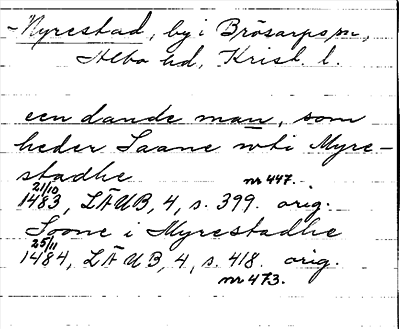 - Myrestad, by i Brösarps sn,
Albo hd, Krist. l.
een dande man, som
heder Saane w̄ti Myre-
stadhe nr 447.
21/10
1483, LÄUB, 4, s. 399. orig.
Soone i Myrestadhe
25/11
1484, LÄUB, 4, s. 418. orig.
nr 473.